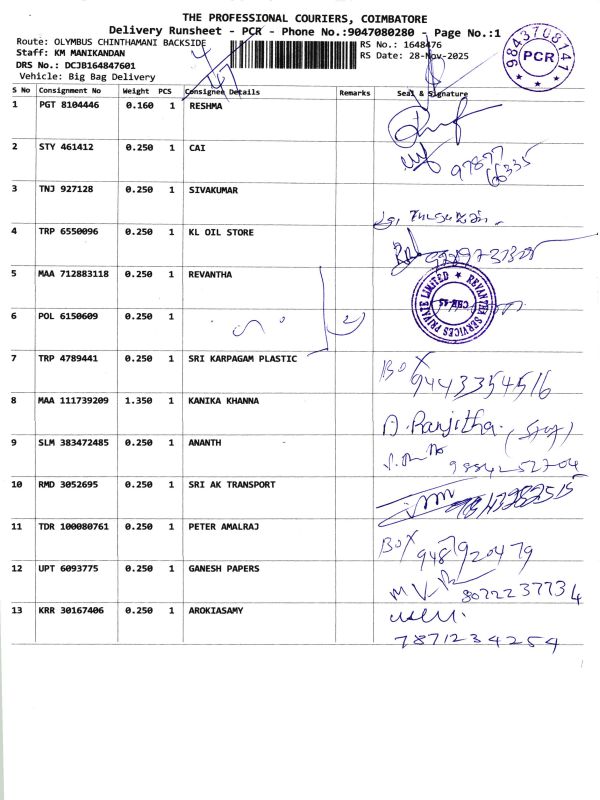 THE PROFESSIONAL COURIERS, COIMBATORE
Delivery Runsheet - PCR - Phone No.:9047080280 - Page No.:1
Route: OLYMBUS CHINTHAMANI BACKSIDE
Staff: KM MANIKANDAN
DRS No.: DCJB164847601
Vehicle: Big Bag Delivery
RS No.: 1648476
RS Date: 28-Nov-2025
9843708141
PCR
S No Consignment No Weight PCS Consignee Details Remarks Seal & Signature
1 PGT 8104446 0.160 1 RESHMA
2 STY 461412 0.250 1 CAI
97877
66335
3 TNJ 927128 0.250 1 SIVAKUMAR
4 TRP 6550096 0.250 1 KL OIL STORE
5 MAA 712883118 0.250 1 REVANTHA
REVANTHA SERVICES PRIVATE LIMITED
CBE-45
6 POL 6150609 0.250 1
7 TRP 4789441 0.250 1 SRI KARPAGAM PLASTIC
Box
9443354516
8 MAA 111739209 1.350 1 KANIKA KHANNA
A. Ranjitha.
9 SLM 383472485 0.250 1 ANANTH
9884252704
10 RMD 3052695 0.250 1 SRI AK TRANSPORT
11 TDR 100080761 0.250 1 PETER AMALRAJ
Box
9487920479
12 UPT 6093775 0.250 1 GANESH PAPERS
8072237734
13 KRR 30167406 0.250 1 AROKIASAMY
7871234254